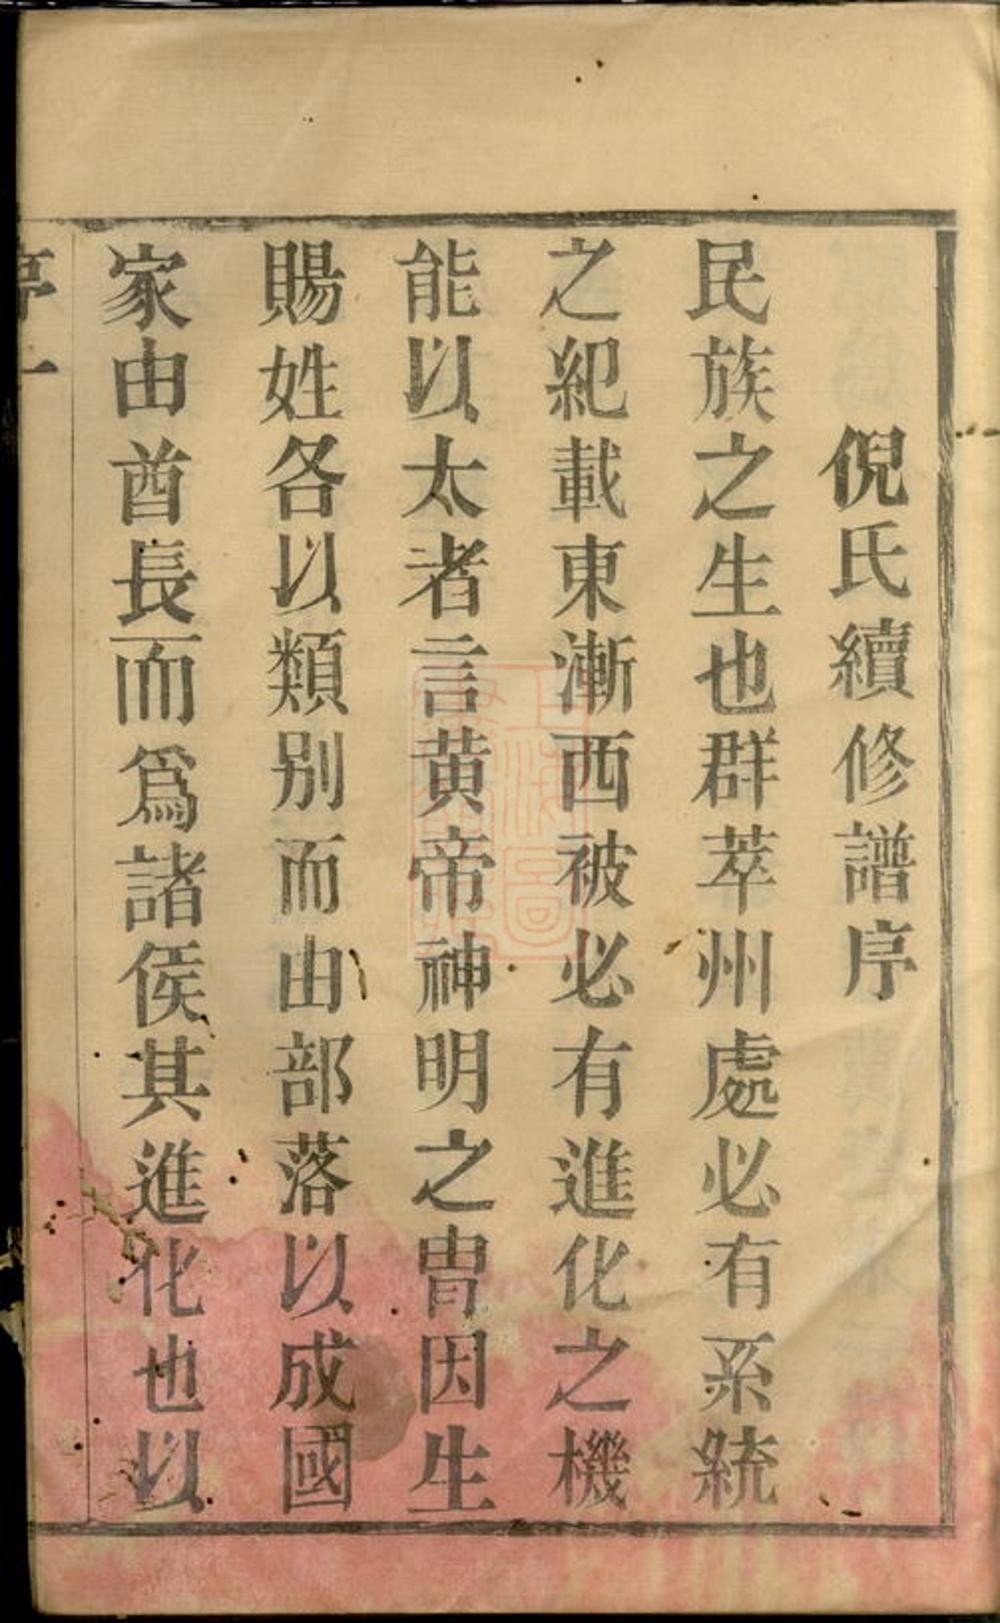 倪氏續修譜序
民族之生也群萃州處必有系統
之紀載東漸西被必有進化之機
能以太者言黄帝神明之胄因生
賜姓各以類别而由部落以成國
家由酋長而爲諸侯其進化也以
序一